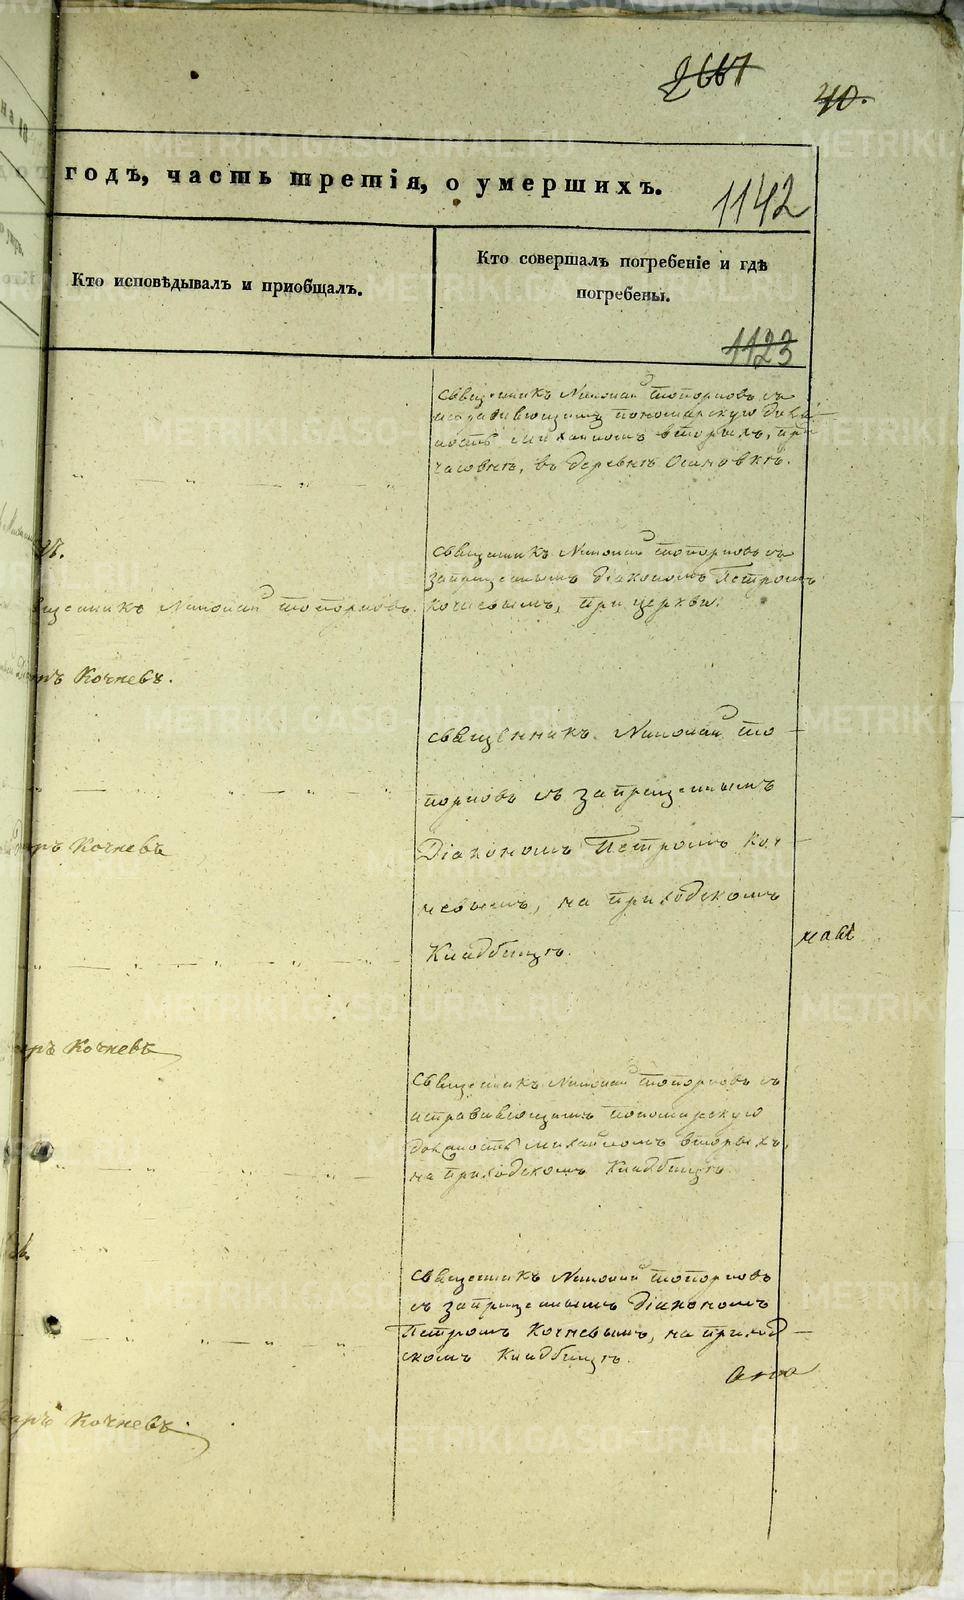 2667
40.
годъ, часть третія, о умершихъ.
1142
Кто исповѣдывалъ и приобщалъ.
Кто совершалъ погребеніе и гдѣ
погребены.
1123
Священникъ Николай Топорковъ съ
исправляющимъ пономарскую долж
ность Михаиломъ Вторыхъ, при
часовнѣ, въ деревнѣ Осиновкѣ.
Священникъ Николай Топорковъ съ
запрещеннымъ Діакономъ Петромъ
Кочневымъ, при церкви.
священникъ Николай Топорковъ.
Кочневъ.
Священникъ Николай То
порковъ съ запрещеннымъ
Діакономъ Петромъ Коч
невымъ, на приходскомъ
Кладбищѣ.
Кочневъ
Кочневъ
Священникъ Николай Топорковъ съ
исправляющимъ пономарскую
должность Михаиломъ Вторыхъ,
на приходскомъ Кладбищѣ.
Священникъ Николай Топорковъ
съ запрещеннымъ Діакономъ
Петромъ Кочневымъ, на приход
скомъ Кладбищѣ.
Кочневъ.
METRIKI.GASO-URAL.RU